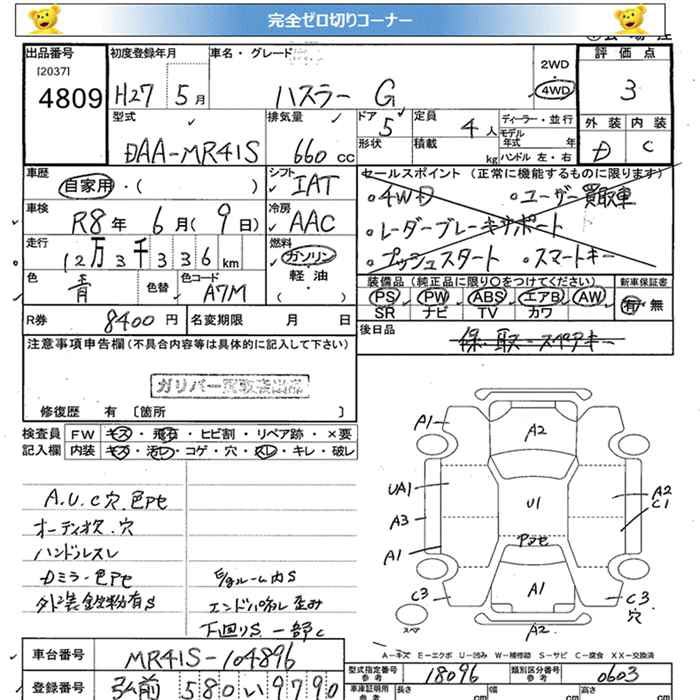 完全ゼロ切りコーナー
出品番号 初度登録年月 車名・グレード 評価点
[2037]
4809 H27 5月 ハスラー G 2WD 4WD 3
型式 排気量 ドア 定員 ディーラー・並行 外装 内装
DAA-MR41S 660 cc 5 4人 モデル年式 年 D C
形状 積載 kg ハンドル 左・右
車歴 自家用・( ) シフト IAT セールスポイント (正常に機能するものに限ります)
車検 R8年 6月( 9日) 冷房 AAC
・4WD ・ユーザー買取車
・レーダーブレーキサポート
・プッシュスタート ・スマートキー
走行 12万3千336km 燃料 ガソリン 軽油 ( ・ )
色 青 色替 色コード A7M
装備品(純正品に限り○をつけてください) 新車保証書
PS PW ABS エアB AW 有・無
SR ナビ TV カワ
R券 8400円 名変期限 月 日 後日品 保・取・スペアキー
注意事項申告欄(不具合内容等は具体的に記入して下さい)
修復歴 有 〔箇所 〕
検査員 FW キズ・飛石・ヒビ割・リペア跡・×要
記入欄 内装 キズ・汚レ・コゲ・穴・スレ・キレ・破レ
A.U.C穴.色アセ
オーディオ欠.穴
ハンドルスレ
Dミラー色アセ
外装金粉有S
E/gルーム内S
エンドパネル歪み
下廻りS 一部C
A1
A2
UA1
U1
A2
C1
A3
A1
アンセ
C3
A1
C3
穴
スペア
A2
A-キズ E-エクボ U-凹み W-補修跡 S-サビ C-腐食 XX-交換済
車台番号 MR41S-104896
型式指定番号 参考 18096 類別区分番号 参考 0603
登録番号 弘前 580 い 9790
車庫証明用 参考 長さ cm 幅 cm 高さ cm